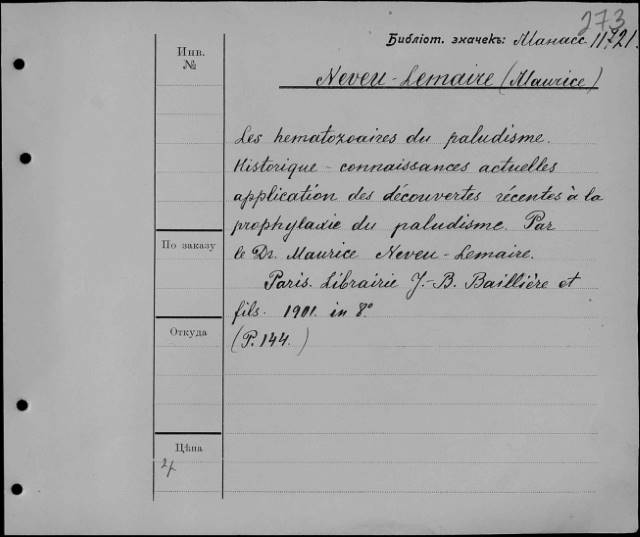 273
Библіот. значекъ: Манасс 11.21.
Инв.
№
Neveu-Lemaire (Maurice)
Les hematozoaires du paludisme.
Historique - connaissances actuelles
application des découvertes récentes à la
prophylaxie du paludisme. Par
По заказу
le Dr. Maurice Neveu-Lemaire.
Paris. Librairie J.-B. Baillière et
fils. 1901. in 8°
Откуда
(P. 144.)
Цѣна